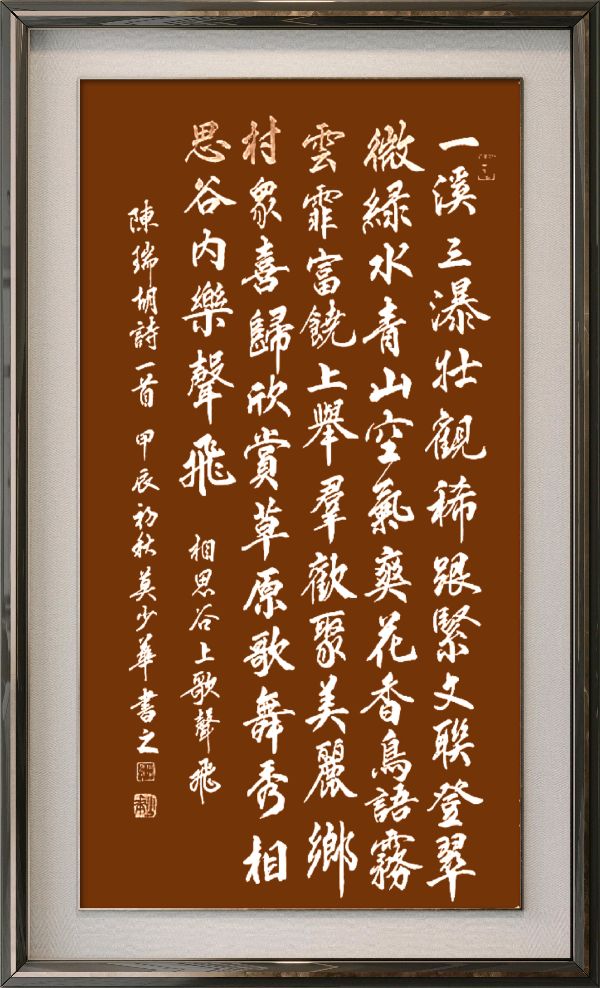 一溪三瀑壯觀稀跟緊文聯登翠
微綠水青山空氣爽花香鳥語霧
雲霏富饒上舉羣歡聚美麗鄉
村眾喜歸欣賞草原歌舞秀相
思谷内樂聲飛
相思谷上歌聲飛
陳瑞胡詩一首甲辰初秋莫少華書之